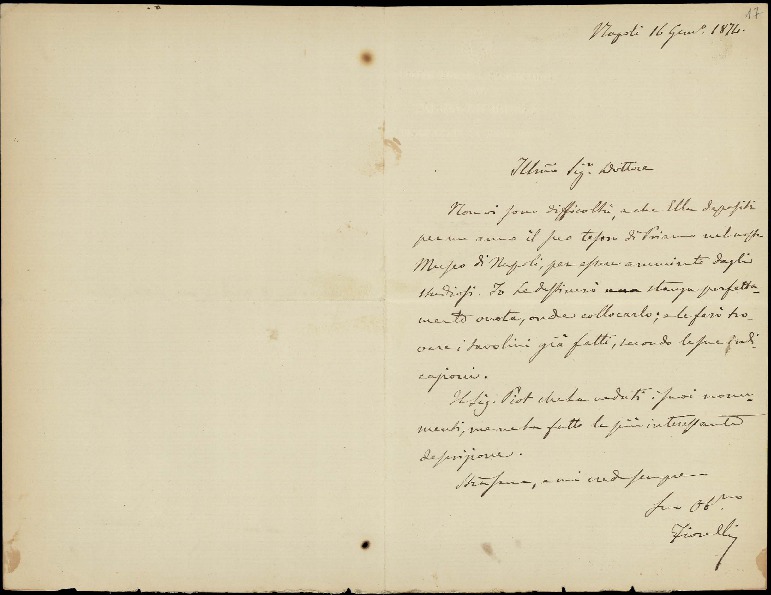 17
Napoli 16 Genn.º 1874.
Illmo Sigr. Dottore
Non vi sono difficoltà, a che Ella depositi
per un anno il suo tesoro di Priamo nel nostro
Museo di Napoli, per essere ammirato dagli
studiosi. Io Le destinerò una stanza perfetta-
mente vuota, onde collocarlo; e le farò tro-
vare i tavolini già fatti, secondo le sue indi-
cazioni.
Il Sig. Piot che ha veduti i suoi monu-
menti, me ne ha fatto la più interessante
descrizione.
e mi creda sempre
Suo Obmo
Fiorelli